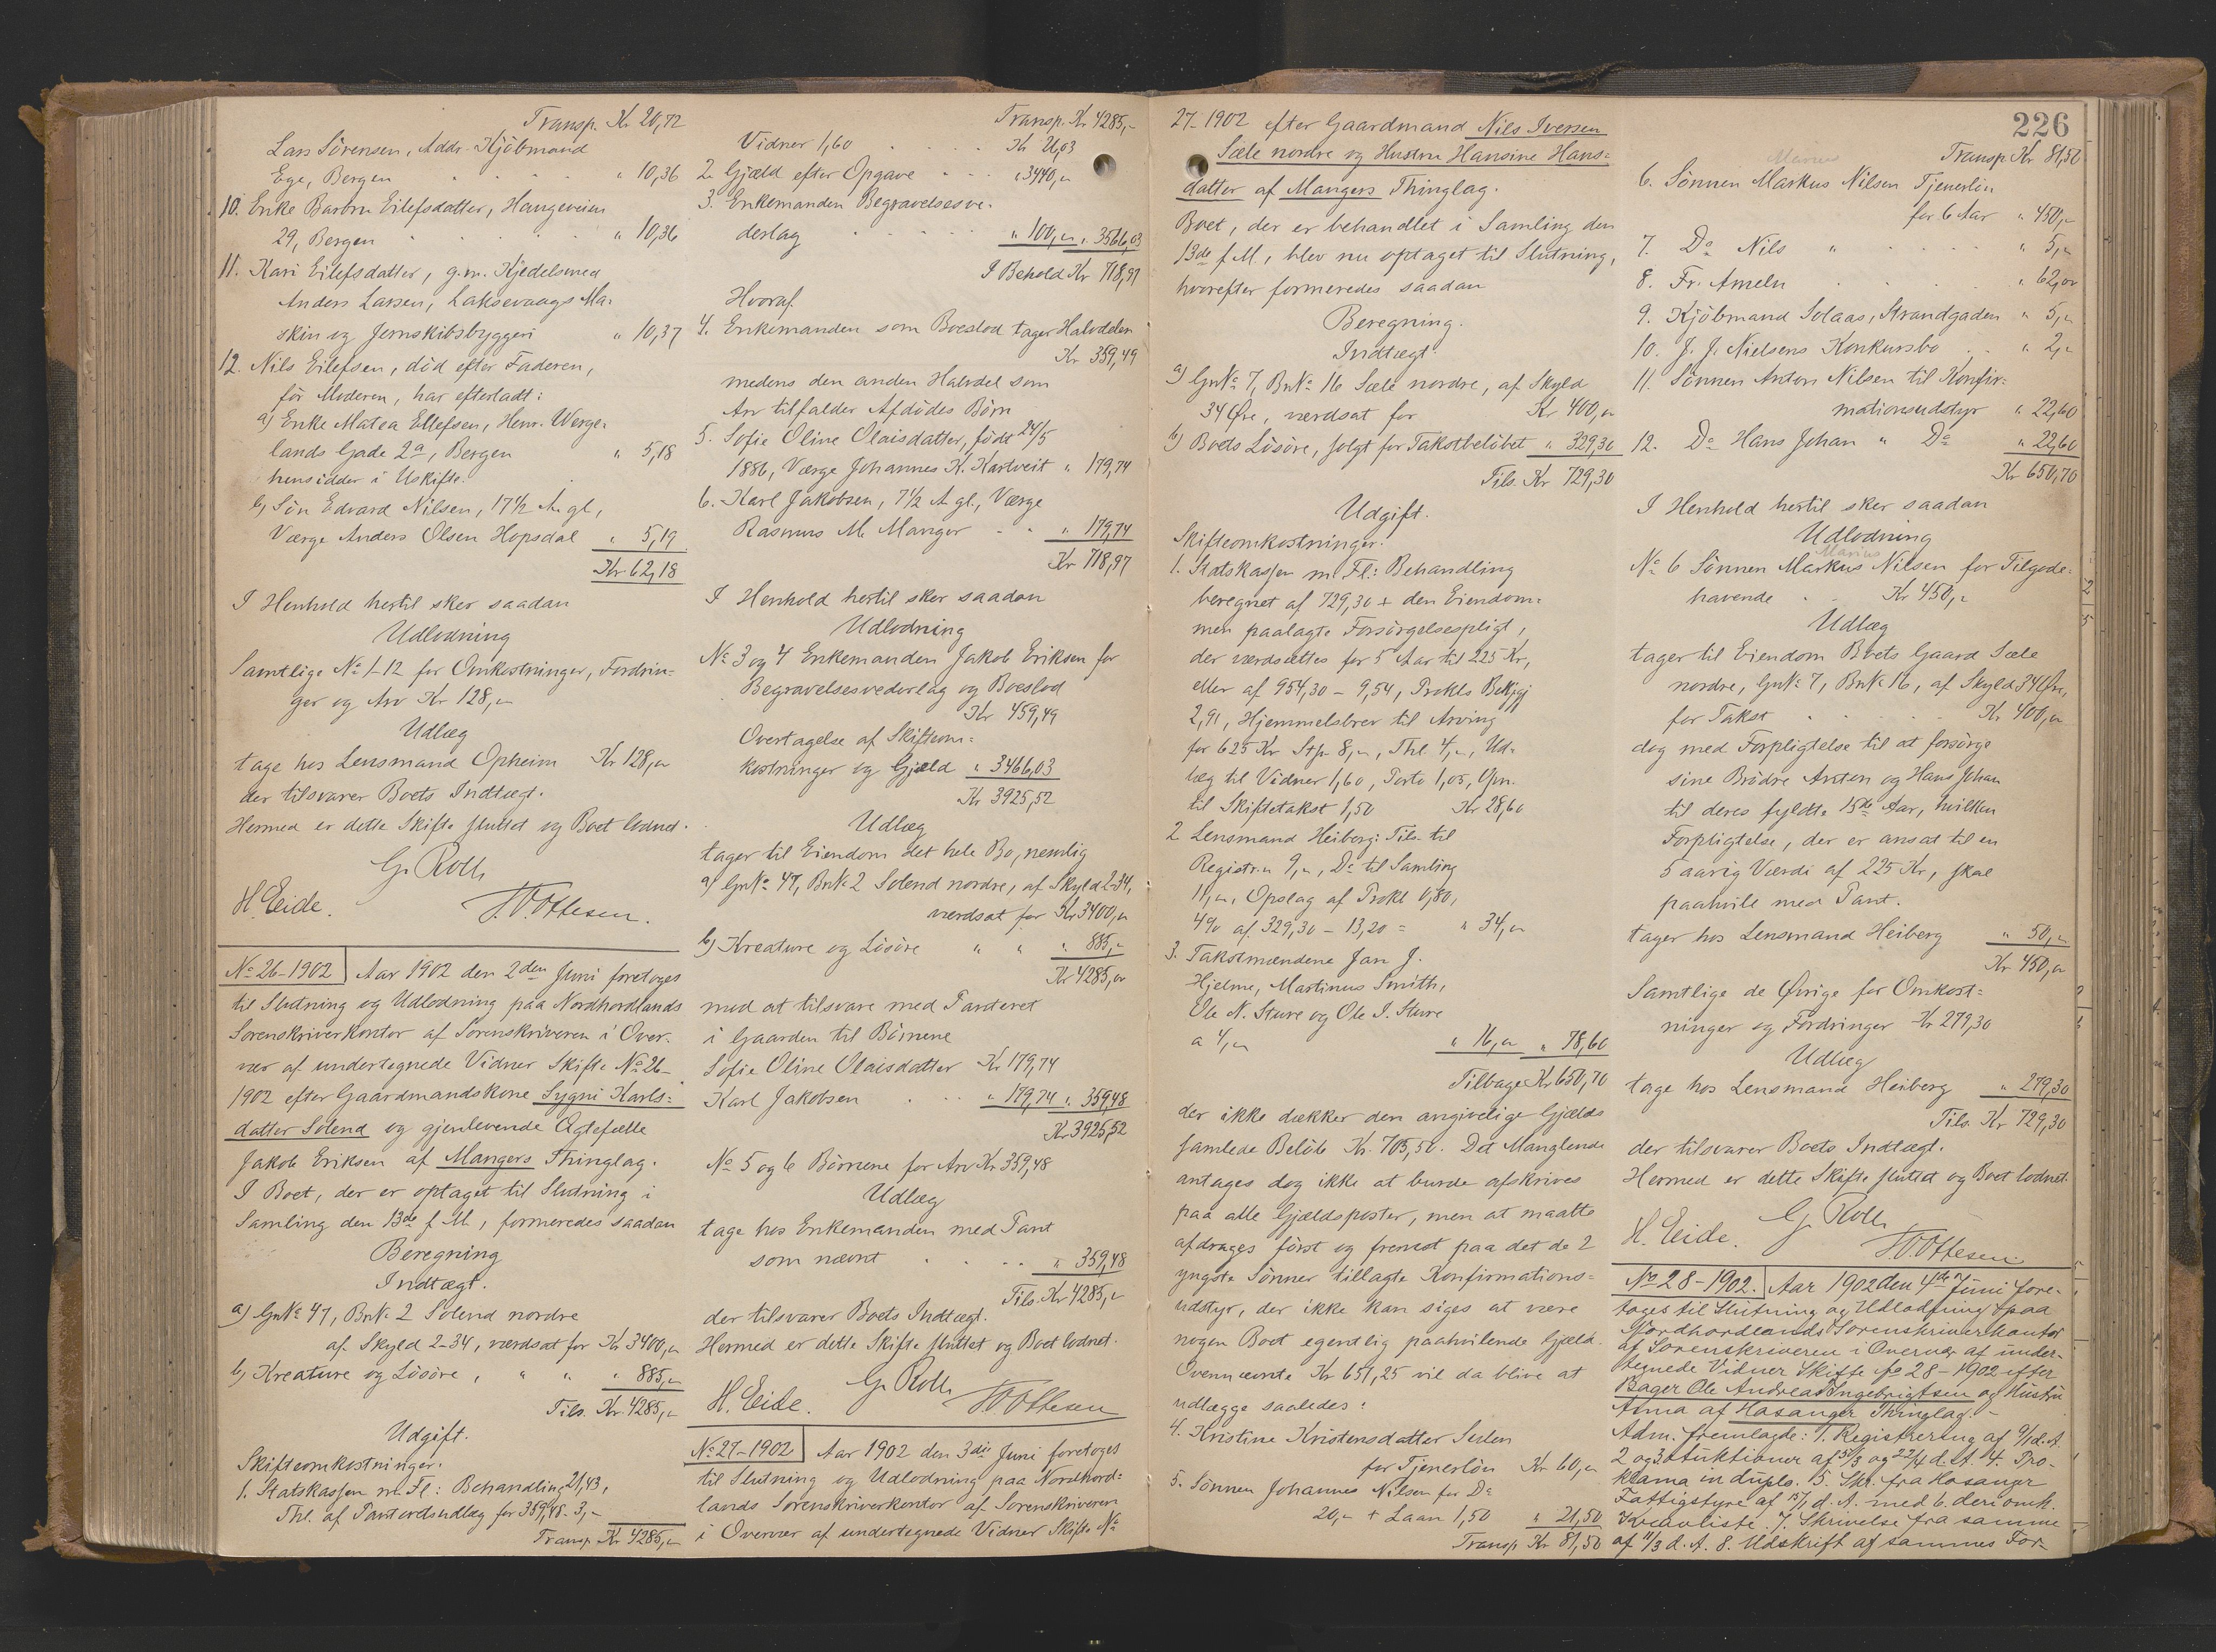 Transp. Kr. 20,72
Lars Sörensen, Addr. Kjöbmand
Ege, Bergen " 10,36
10. Enke Barbru Eilefsdatter, Haugeveien
29, Bergen " 10,36
11. Kari Eilefsdatter, g.m. Kjedelsmed
Anders Larsen, Laksevaags Ma-
skin og Jernskibsbyggeri " 10,37
12. Nils Eilefsen, död efter Faderen,
för Moderen, har efterladt:
a) Enke Matea Ellefsen, Henr. Werge-
lands Gade 2a, Bergen " 5,18
hensidder i Uskifte.
b) Sön Edvard Nilsen, 17 1/2 A. gl,
Værge Anders Olsen Hopsdal " 5,19
Kr 62,18
I Henhold hertil sker saadan
Udlodning
Samtlige No 1-12 for Omkostninger, Fordrin-
ger og Arv Kr 128,-
Udlæg
tage hos Lensmand Opheim Kr 128,-
der tilsvarer Boets Indtægt.
Hermed er dette Skifte sluttet og Boet lodnet.
G. Roll
H. Eide. Ottesen.
No 26-1902 Aar 1902 den 2den Juni foretoges
til Slutning og Udlodning paa Nordhordlands
Sorenskriverkontor af Sorenskriveren i Over-
vær af undertegnede Vidner Skifte No 26-
1902 efter Gaardmandskone Sygni Karls=
datter Solend og gjenlevende Ægtefælle
Jakob Eriksen af Mangers Thinglag.
I Boet, der er optaget til Slutning i
Samling den 13de f. M., formeredes saadan
Beregning
Indtægt.
a) GnNo 47, BnNo 2 Solend nordre
af Skyld 2-34, værdsat for Kr 3400,-
b) Kreature og Lösöre, " " " 885,-
Tils. Kr. 4285,-
Udgift.
Skifteomkostninger.
1. Statskassen m. Fl: Behandling 21,43,
Thl. af Panteudlæg for 359,48 - 3,-
Transp Kr 4285,-
Transp. Kr 4285,-
Vidner 1,60 Kr 26,03
2. Gjæld efter Opgave " 3440,-
3. Enkemanden Begravelsesve-
derlag " 100,- " 3566,03
I Behold Kr 718,97
Hvoraf
4. Enkemanden som Boeslod tager Halvdelen
Kr 359,49
medens den anden Halvdel som
Arv tilfalder Afdödes Börn
5. Sofie Oline Olaisdatter, født 24/5
1886, Værge Johannes K. Kartveit " 179,74
6. Karl Jakobsen, 7 1/2 A. gl., Værge
Rasmus M. Manger " 179,74
Kr 718,97
I Henhold hertil sker saadan
Udlodning
No 3 og 4 Enkemanden Jakob Eriksen for
Begravelsesvederlag og Boeslod
Kr 459,49
Overtagelse af Skifteom=
kostninger og Gjæld " 3466,03
Kr 3925,52
Udlæg
tager til Eiendom det hele Bo, nemlig
a) GnNo 47, BnNo 2 Solend nordre, af Skyld 2-34,
værdsat for Kr 3400,-
b) Kreature og Lösöre " " " 885,-
Kr 4285,00
mod at tilsvare med Panteret
i Gaarden til Börnene
Sofie Oline Olaisdatter Kr 179,74
Karl Jakobsen " 179,74 " 359,48
Kr 3925,52
No 5 og 6 Börnene for Arv Kr 359,48
Udlæg
tage hos Enkemanden med Pant
som nævnt " 359,48
Tils. Kr 4285,-
der tilsvarer Boets Indtægt.
Hermed er dette Skifte sluttet og Boet lodnet.
G. Roll
H. Eide. Ottesen
No 27-1902 Aar 1902 den 3die Juni foretoges
til Slutning og Udlodning paa Nordhord=
lands Sorenskriverkontor af Sorenskriveren
i Overvær af undertegnede Vidner Skifte No
27-1902 efter Gaardmand Nils Iversen
Sæle nordre og Hustru Hansine Hans=
datter af Mangers Thinglag.
Boet, der er behandlet i Samling den
13de f. M., blev nu optaget til Slutning,
hvorefter formeredes saadan
Beregning.
Indtægt.
a) GnNo 7, BnNo 16 Sæle nordre, af Skyld
34 Øre, værdsat for Kr 400,-
b) Boets Lösöre, solgt for Takstbelöbet " 329,30
Tils. Kr 729,30
Udgift.
Skifteomkostninger.
1. Statskassen m. Fl.: Behandling
beregnet af 729,30 + den Eiendom=
men paalagte Forsörgelsespligt,
der værdsættes for 5 Aar til 225 Kr,
eller af 954,30 - 9,54, Prokls Bekjgj
2,91, Hjemmelsbrev til Arving
for 625 Kr Stp. 8,-, Thl. 4,-, Ud-
læg til Vidner 1,60, Porto 1,05, Gjen.
til Skiftetakst 1,50 Kr 28,60
2. Lensmand Heiberg: Tils. til
Registr. 9,-, Do til Samling
11,-, Opslag af Prokl 0,80,
4% af 329,30 - 13,20 = " 34,-
3. Takstmændene Jan J.
Hjelme, Martinus Smith,
Ole N. Sture og Ole I. Sture
a 4,- " 16,- " 78,60
Tilbage Kr 650,70
der ikke dækker den angivelige Gjælds
samlede Belöb Kr. 705,50. Det Manglende
antages dog ikke at burde afskrives
paa alle Gjældsposter, men at maatte
afdrages först og fremst paa det de 2
yngste Sönner tillagte Konfirmations=
udstyr, der ikke kan siges at være
nogen Boet egentlig paahvilende Gjæld.
Ovennævnte Kr 651,25 vil da blive at
udlægge saaledes:
4. Kristine Kristensdatter
for Tjenerlön Kr 60,-
5. Sönnen Johannes Nilsen for Do
20,- + Laan 1,50 " 21,50
Transp Kr 81,50
226
Transp Kr 81,50
Marius
6. Sönnen Markus Nilsen Tjenerlön
for 6 Aar " 450,-
7. Do Nils " " 5,-
8. Fr. Ameln " 62,00
9. Kjöbmand Solaas, Strandgaden " 5,-
10. J. J. Nielsens Konkursbo " 2,-
11. Sönnen Anton Nilsen til Konfir-
mationsudstyr " 22,60
12. Do Hans Johan " Do " 22,60
Kr 650,70
I Henhold hertil sker saadan
Udlodning
Marius
No 6 Sönnen Markus Nilsen for Tilgode-
havende Kr 450,-
Udlæg
tager til Eiendom Boets Gaard Sæle
nordre, GnNo 7, BnNo 16, af Skyld 34 Øre,
for Takst Kr. 400,-
dog med Forpligtelse til at forsörge
sine Brödre Anton og Hans Johan
til deres fyldte 15de Aar, hvilken
Forpligtelse, der er ansat til en
5 aarig Værdi af 225 Kr, skal
paahvile med Pant.
tager hos Lensmand Heiberg " 50,-
Kr 450,-
Samtlige de Øvrige for Omkost=
ninger og Fordringer Kr 279,30
Udlæg
tage hos Lensmand Heiberg " 279,30
Tils. Kr 729,30
der tilsvarer Boets Indtægt.
Hermed er dette Skifte sluttet og Boet lodnet.
G. Roll
H. Eide. Ottesen
No 28-1902. Aar 1902 den 4de Juni fore-
toges til Slutning og Udlodning paa
Nordhordlands Sorenskriverkontor
af Sorenskriveren i Overvær af under-
tegnede Vidner Skifte No 28-1902 efter
Bager Ole Andreas Ingebrigtsen og Hustru
Anna af Hosanger Thinglag.-
Adm. fremlagde: 1. Registrering af 9/1 d.A.
2 og 3 Auktioner af 5/3 og 22/4 d.A. 4. Pro-
klama in duplo. 5. Skr. fra Hosanger
Fattigstyre af 15/1 d.A. med 6. deri omh.
Kravliste. 7. Skrivelse fra samme
af 11/3 d.A. 8. Udskrift af sammes For-